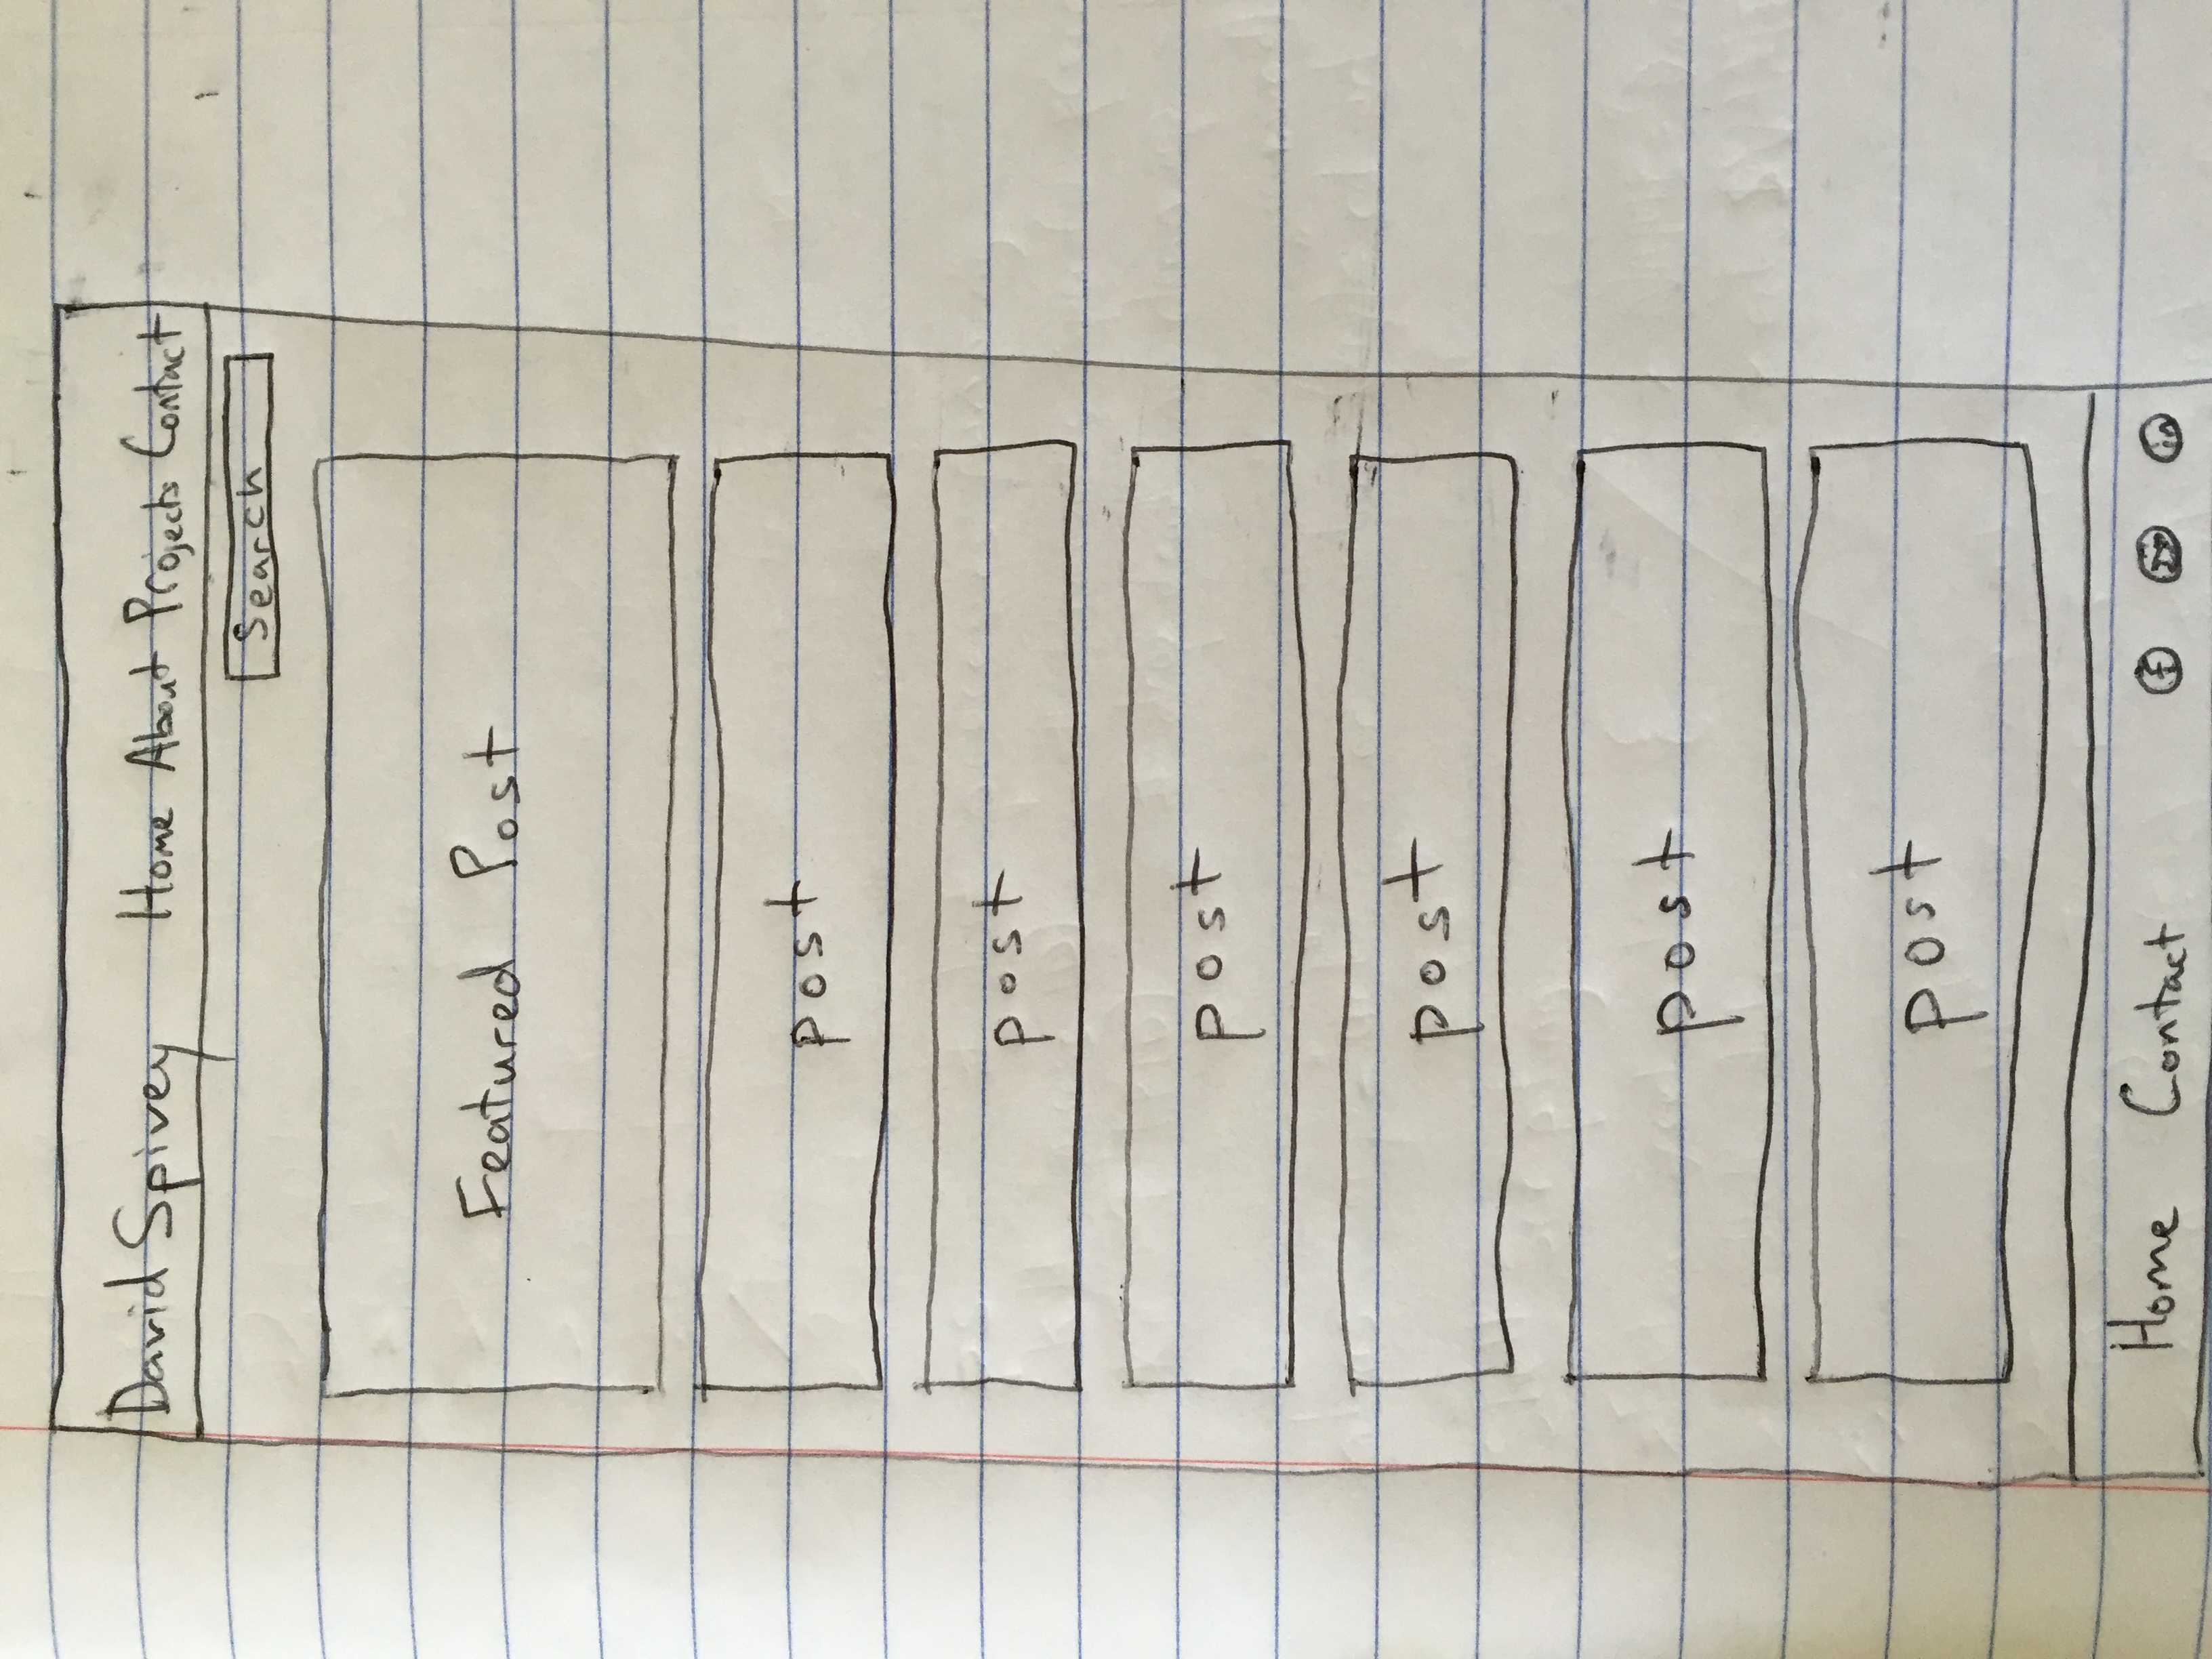 David Spivey Home About Projects Contact
Search
Featured Post
post
post
post
post
post
post
Home Contact f in